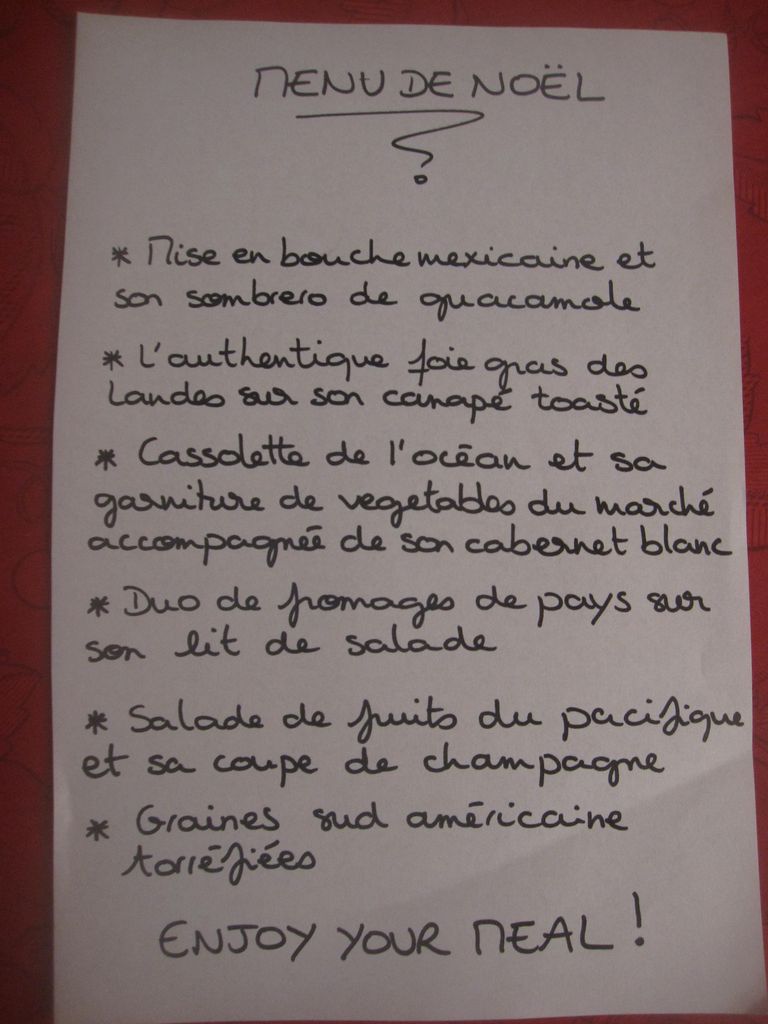 MENU DE NOËL
* Mise en bouche mexicaine et
son sombrero de guacamole
* L'authentique foie gras des
Landes sur son canapé toasté
* Cassolette de l'océan et sa
garniture de vegetables du marché
accompagnée de son cabernet blanc
* Duo de fromages de pays sur
son lit de salade
* Salade de fruits du pacifique
et sa coupe de champagne
* Graines sud américaine
torréfiées
ENJOY YOUR MEAL !